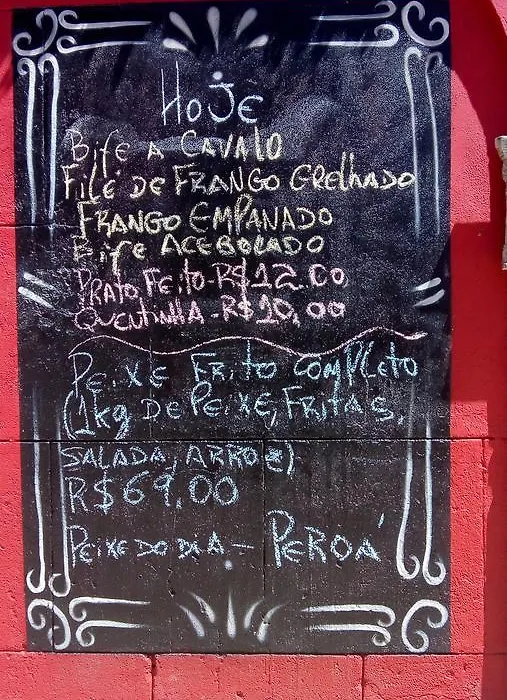 HoJe
Bife A CAVALO
Filé DE FRANGO GRelhADO
FRANGO EMPANADO
Bife ACEBOLADO
PRATO FeiTO-R$12.00
QUENTINHA-R$10,00
PeiXE FRito COMPLeto
(1kg DePeiXE, FRITAS,
SALADA, ARROZ)
R$69,00
PeiXE DO DIA - PEROÁ